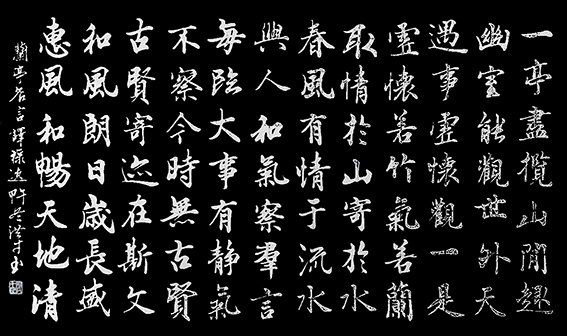 一亭盡攬山間趣
幽室能觀世外天
遇事虛懷觀一是
虛懷若竹氣若蘭
取情於山寄於水
春風有情于流水
與人和氣察羣言
每臨大事有靜氣
不察今時無古賢
古賢寄迹在斯文
和風朗日歲長盛
惠風和暢天地清
蘭亭名言